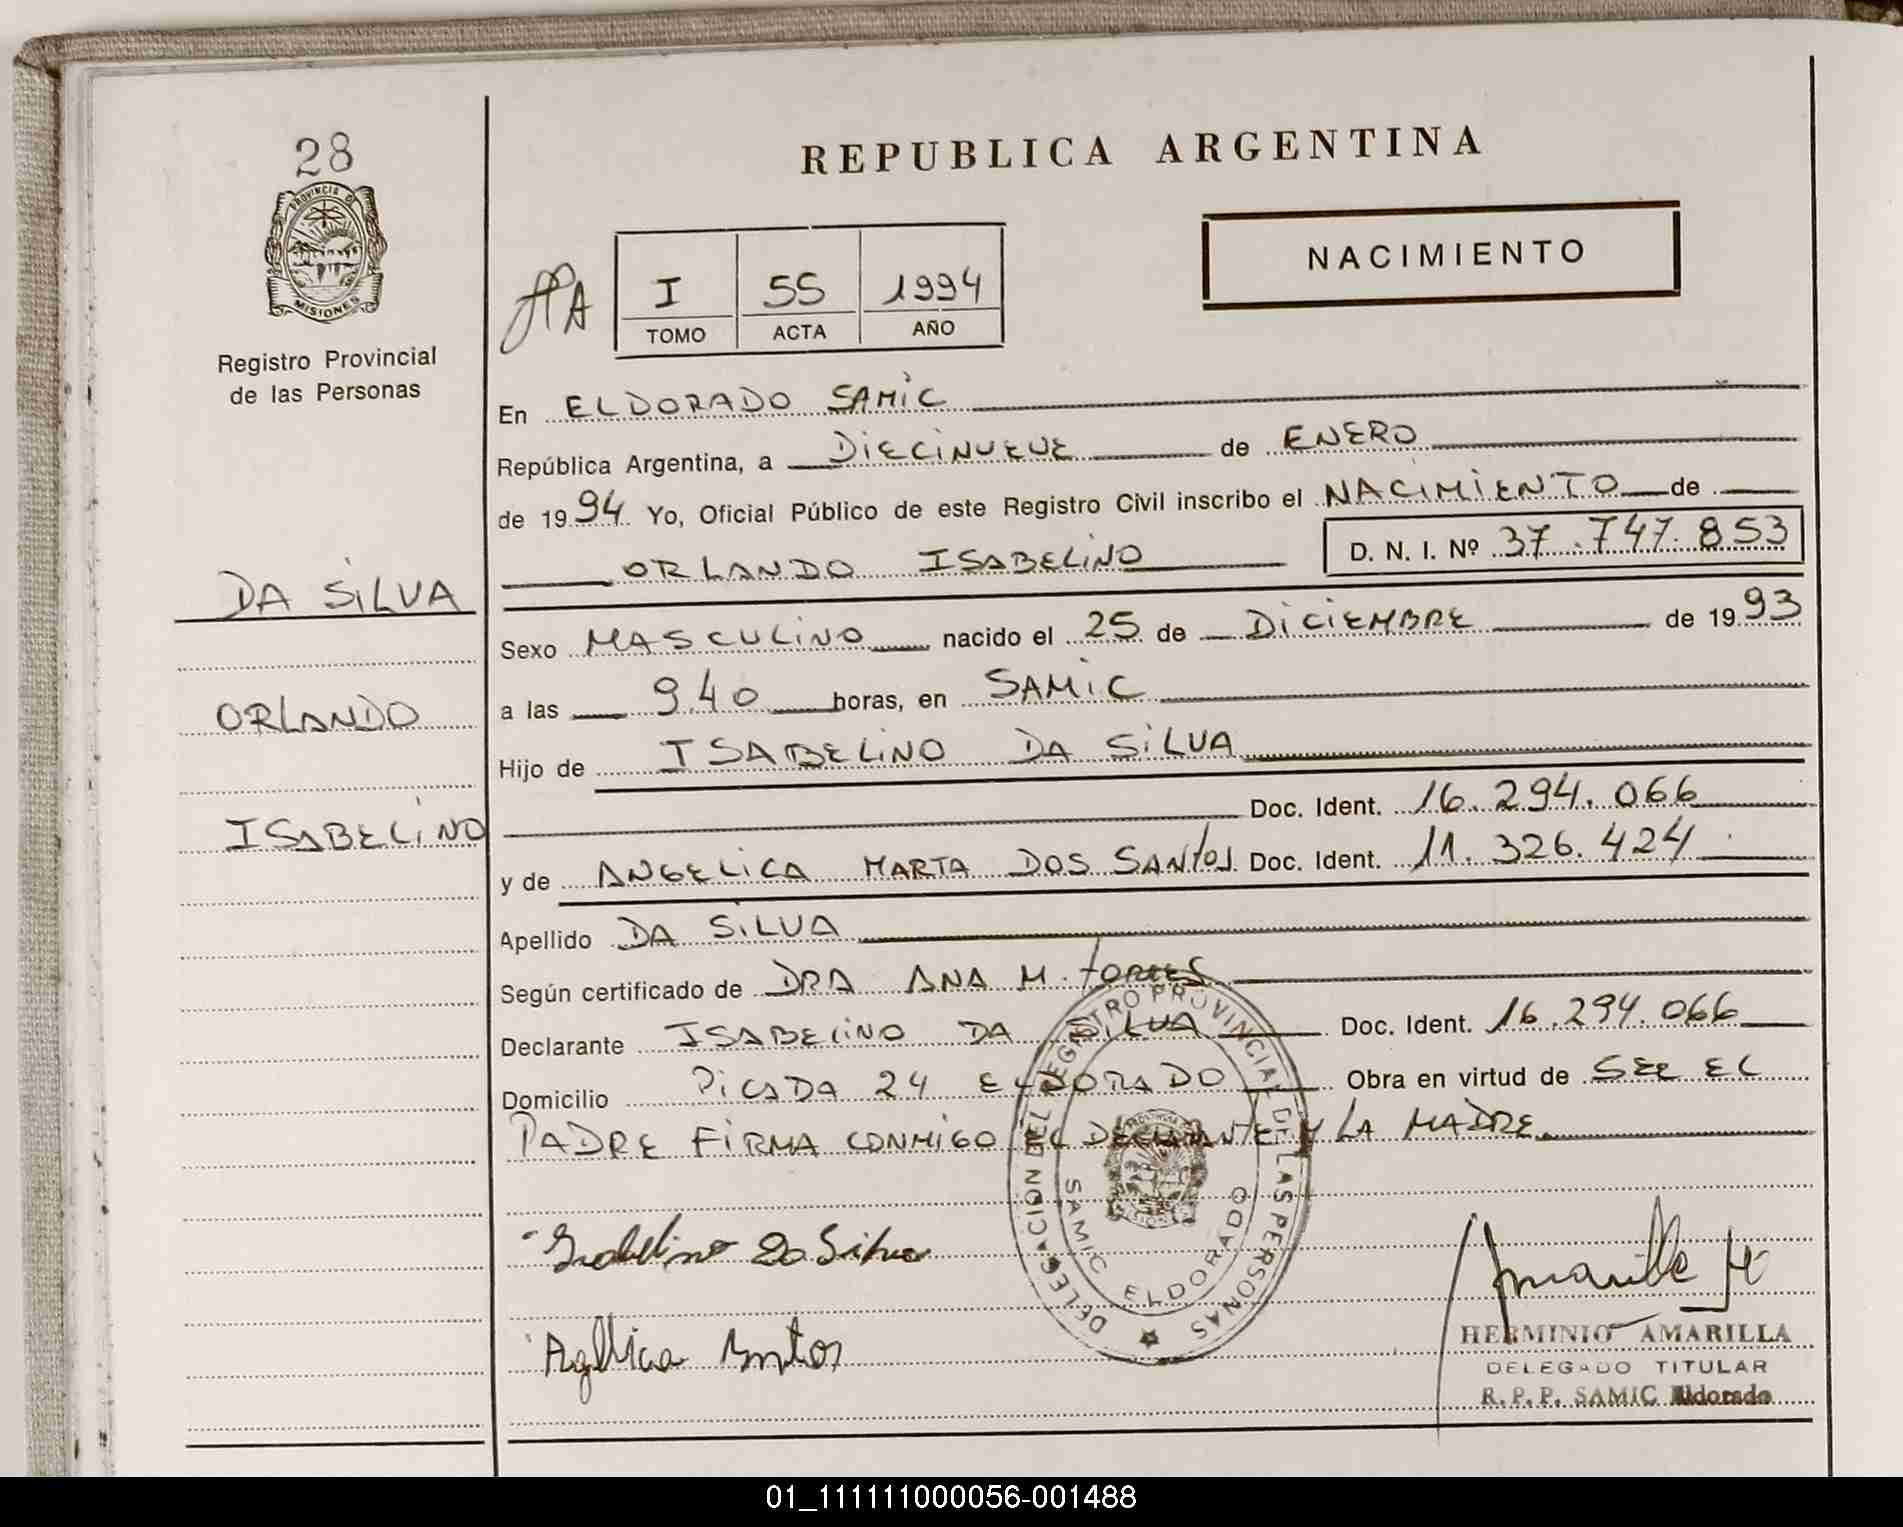 28
PROVINCIA DE
MISIONES
Registro Provincial
de las Personas
DA SILVA
ORLANDO
ISABELINO
REPUBLICA ARGENTINA
NACIMIENTO
I 55 1994
TOMO ACTA AÑO
En ELDORADO SAMIC
República Argentina, a DIECINUEVE de ENERO
de 1994 Yo, Oficial Público de este Registro Civil inscribo el NACIMIENTO de
ORLANDO ISABELINO D. N. I. Nº 37.747.853
Sexo MASCULINO nacido el 25 de DICIEMBRE de 1993
a las 9.40 horas, en SAMIC
Hijo de ISABELINO DA SILVA
Doc. Ident. 16.294.066
y de ANGELICA MARTA DOS SANTOS Doc. Ident. 11.326.424
Apellido DA SILVA
Según certificado de DRA ANA M. TORRES
Declarante ISABELINO DA SILVA Doc. Ident. 16.294.066
Domicilio PICADA 24 ELDORADO Obra en virtud de SER EL
PADRE FIRMA CONMIGO EL DECLARANTE Y LA MADRE
DELEGACION DEL REGISTRO PROVINCIAL DE LAS PERSONAS
SAMIC ELDORADO
Isabelino Da Silva
HERMINIO AMARILLA
DELEGADO TITULAR
R. P. P. SAMIC Eldorado
01_111111000056-001488